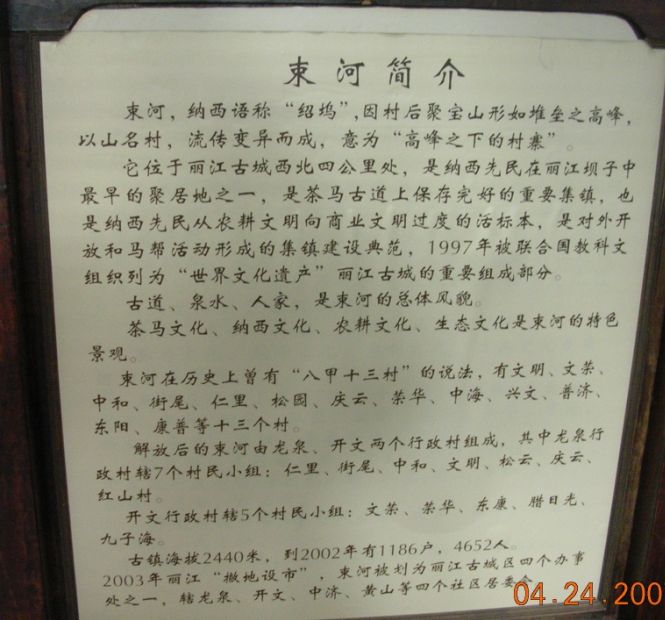 束河简介
束河，纳西语称“绍坞”，因村后聚宝山形如堆垒之高峰，
以山名村，流传变异而成，意为“高峰之下的村寨”。
它位于丽江古城西北四公里处，是纳西先民在丽江坝子中
最早的聚居地之一，是茶马古道上保存完好的重要集镇，也
是纳西先民从农耕文明向商业文明过度的活标本，是对外开
放和马帮活动形成的集镇建设典范，1997年被联合国教科文
组织列为“世界文化遗产”丽江古城的重要组成部分。
古道、泉水、人家，是束河的总体风貌。
茶马文化、纳西文化、农耕文化、生态文化是束河的特色
景观。
束河在历史上曾有“八甲十三村”的说法，有文明、文荣、
中和、街尾、仁里、松园、庆云、荣华、中海、兴文、普济、
东阳、康普等十三个村。
解放后的束河由龙泉、开文两个行政村组成，其中龙泉行
政村辖7个村民小组：仁里、街尾、中和、文明、松云、庆云、
红山村。
开文行政村辖5个村民小组：文荣、荣华、东康、腊日光、
九子海。
古镇海拔2440米，到2002年有1186户，4652人。
2003年丽江“撤地设市”，束河被划为丽江古城区四个办事
处之一，辖龙泉、开文、中济、黄山等四个社区居委会
04.24.200